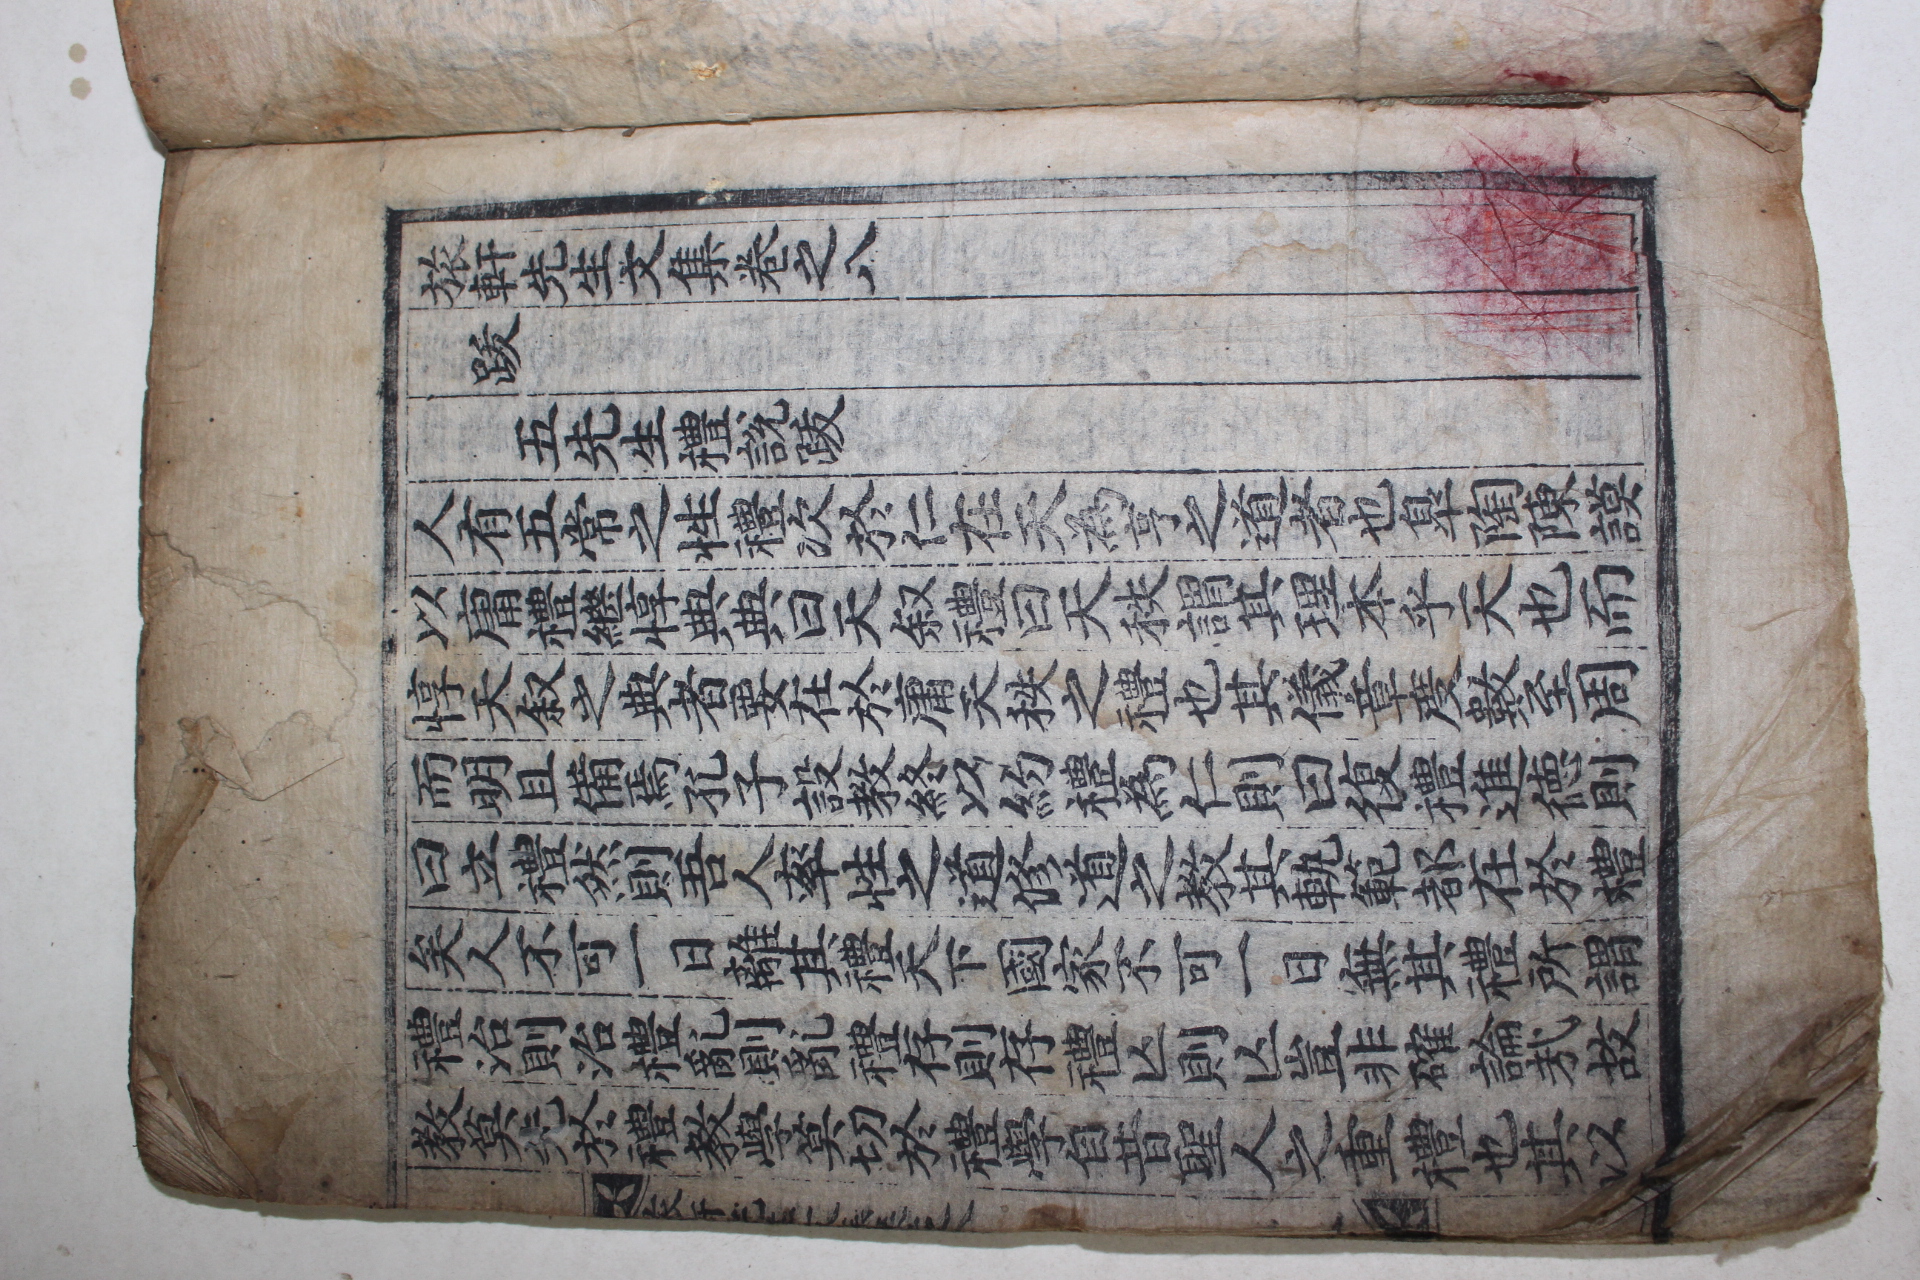 旅軒先生文集卷之八
跋
五先生禮說跋
人有五常之性禮次於仁在天爲亨之道者也皐陶陳謨
以庸禮繼惇典典曰天敘禮曰天秩謂其理本乎天也而
惇天敘之典者要在於庸天秩之禮也其儀章度數至周
而明且備焉孔子設敎終以約禮爲仁則曰復禮進德則
曰立禮然則吾人率性之道修道之敎其軌範都在於禮
矣人不可一日離其禮天下國家不可一日無其禮所謂
禮治則治禮亂則亂禮存則存禮亡則亡豈非確論哉故
敎莫先於禮敎學莫切於禮學自昔聖人之重禮也其以